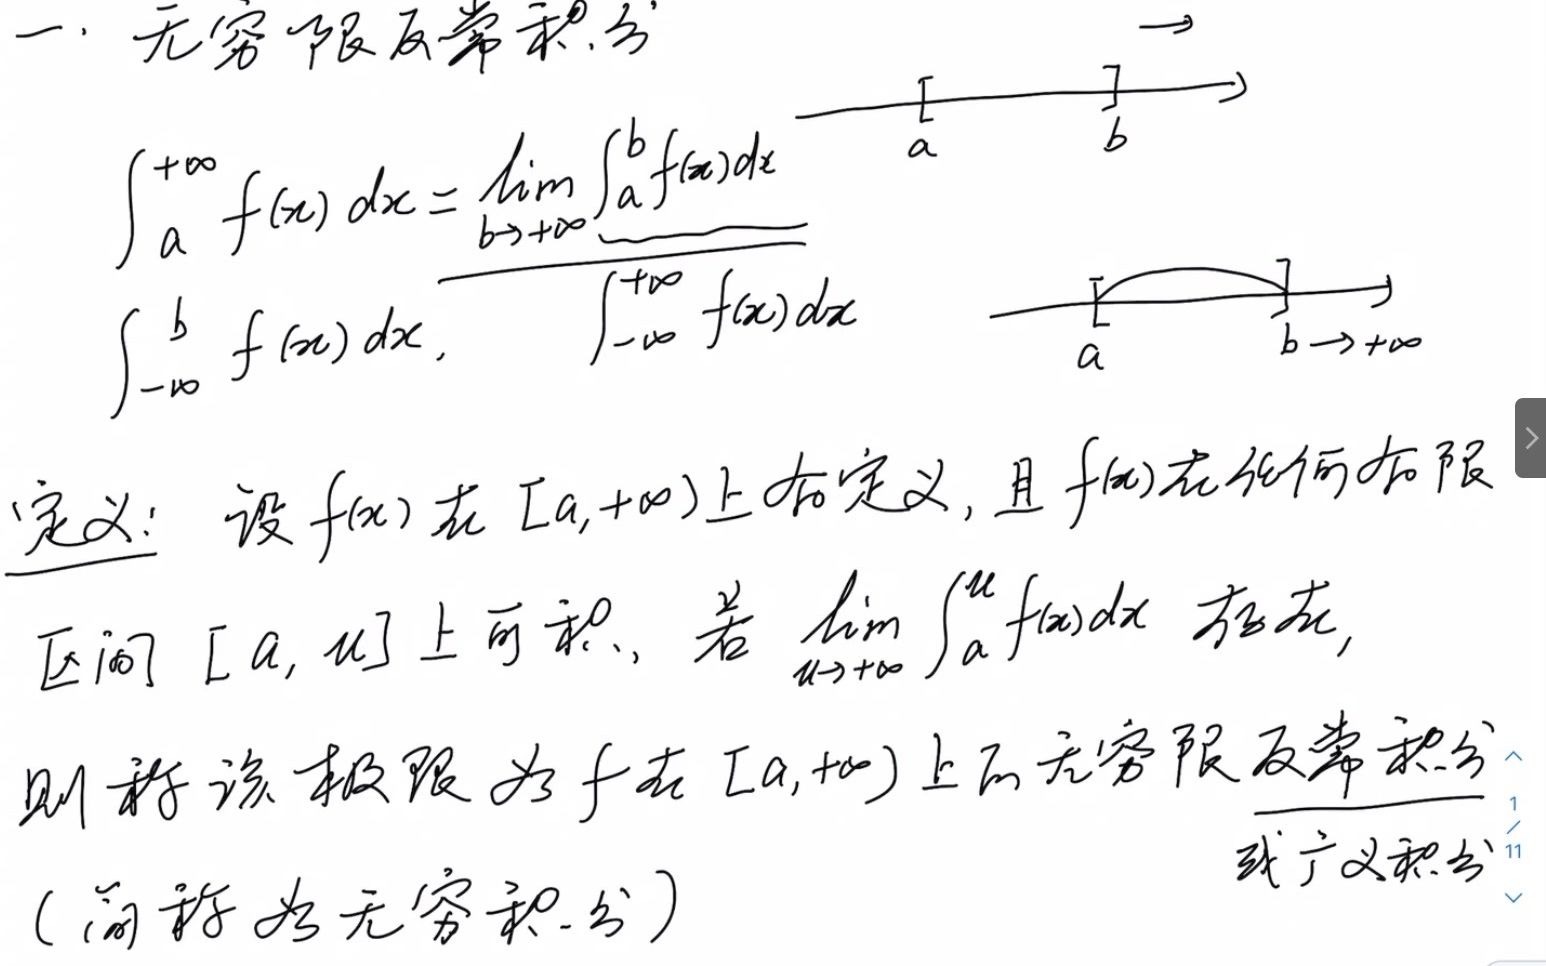 一. 无穷限反常积分
→
a b
∫_a^{+∞} f(x) dx = lim_{b→+∞} ∫_a^b f(x)dx
∫_{-∞}^b f(x) dx, ∫_{-∞}^{+∞} f(x) dx
a b→+∞
定义: 设f(x)在[a,+∞)上有定义, 且f(x)在任何有限
区间[a, u]上可积, 若 lim_{u→+∞} ∫_a^u f(x)dx 存在,
则称该极限为f在[a,+∞)上的无穷限反常积分
或广义积分
(简称为无穷积分)
1
/
11